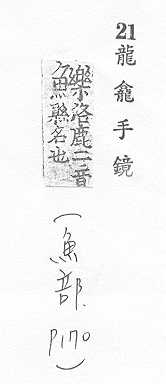 21 龍龕手鏡
樂洛鹿三音
魚縣名也
(魚部. P170)